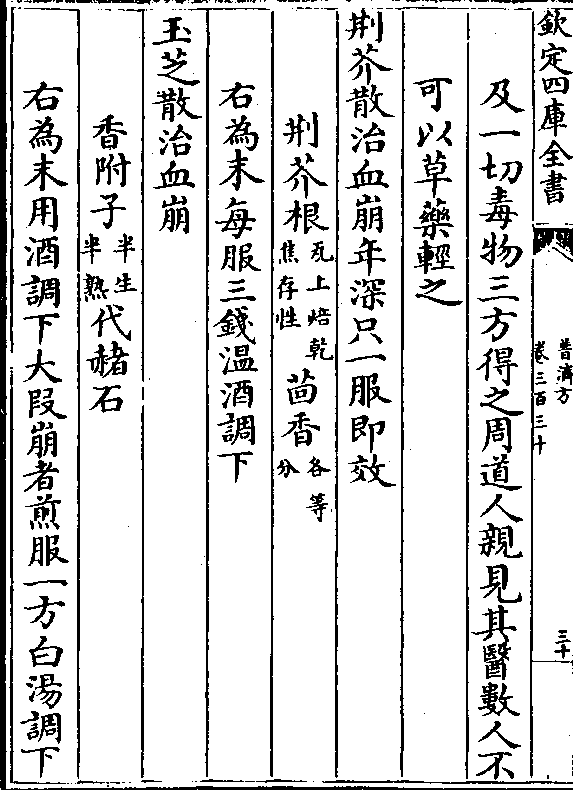 欽定四庫全書
普濟方
卷三百三十
三十
及一切毒物三方得之周道人親見其醫數人不
可以草藥輕之
荆芥散治血崩年深只一服即效
荆芥根瓦上焙乾焦存性茴香各等分
右為末每服三錢温酒調下
玉芝散治血崩
香附子半生半熟代赭石
右為末用酒調下大段崩者煎服一方白湯調下